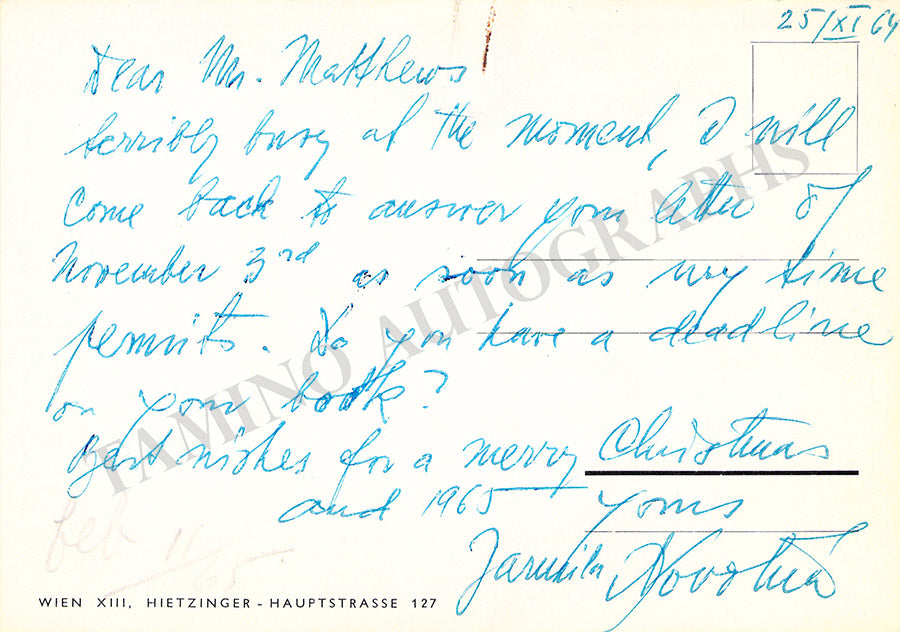 25/XI 64
Dear Mr. Matthews
terribly busy at the moment, I will
come back to answer your letter of
November 3rd as soon as my time
permits. Do you have a deadline
on your book?
Best wishes for a merry Christmas
and 1965 yours
Jarmila Novotná
feb 11/65
WIEN XIII, HIETZINGER - HAUPTSTRASSE 127
TAMINO AUTOGRAPHS